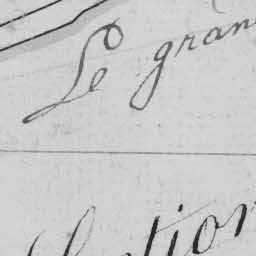 Le gran
ction